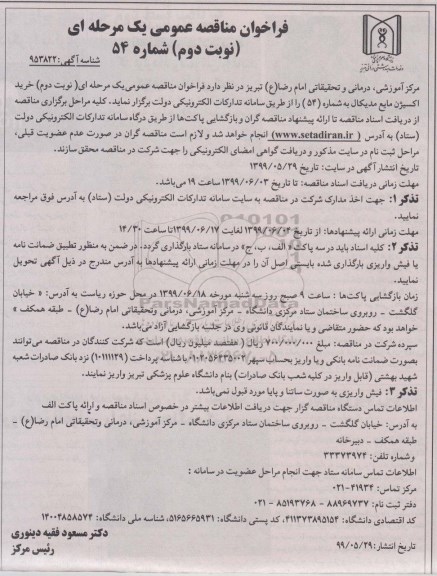 فراخوان مناقصه عمومی یک مرحله ای
(نوبت دوم) شماره ۵۴
شناسه آگهی: ۹۵۳۸۲۲
مرکز آموزشی، درمانی و تحقیقاتی امام رضا(ع) تبریز در نظر دارد فراخوان مناقصه عمومی یک مرحله ای (نوبت دوم) خرید
اکسیژن مایع مدیکال به شماره (۵۴) را از طریق سامانه تدارکات الکترونیکی دولت برگزار نماید. کلیه مراحل برگزاری مناقصه
از دریافت اسناد مناقصه تا ارائه پیشنهاد مناقصه گران و بازگشایی پاکت‌ها از طریق درگاه سامانه تدارکات الکترونیکی دولت
(ستاد) به آدرس (www.setadiran.ir) انجام خواهد شد و لازم است مناقصه گران در صورت عدم عضویت قبلی،
مراحل ثبت نام در سایت مذکور و دریافت گواهی امضای الکترونیکی را جهت شرکت در مناقصه محقق سازند.
تاریخ انتشار آگهی در سایت: تاریخ ۱۳۹۹/۰۵/۲۹
مهلت زمانی دریافت اسناد مناقصه: تا تاریخ ۱۳۹۹/۰۶/۰۳ ساعت ۱۹ می‌باشد.
تذکر ۱: جهت اخذ مدارک شرکت در مناقصه به سایت سامانه تدارکات الکترونیکی دولت (ستاد) به آدرس فوق مراجعه
نمایید.
مهلت زمانی ارائه پیشنهادها: از تاریخ ۱۳۹۹/۰۶/۰۴ لغایت ۱۳۹۹/۰۶/۱۷ تا ساعت ۱۴/۳۰
تذکر ۲: کلیه اسناد باید در سه پاکت «الف، ب، ج» در سامانه ستاد بارگذاری گردد. در ضمن به منظور تطبیق ضمانت نامه
یا فیش واریزی بارگذاری شده بایستی اصل آن را در مهلت زمانی ارائه پیشنهادها به آدرس مندرج در ذیل آگهی تحویل
نمایید.
زمان بازگشایی پاکت‌ها: ساعت ۹ صبح روز سه شنبه مورخه ۱۳۹۹/۰۶/۱۸ در محل حوزه ریاست به آدرس: «خیابان
گلگشت - روبروی ساختمان ستاد مرکزی دانشگاه - مرکز آموزشی، درمانی وتحقیقاتی امام رضا(ع) - طبقه همکف»
خواهد بود که حضور متقاضی و یا نمایندگان قانونی وی در جلسه بازگشایی آزاد می‌باشد.
سپرده شرکت در مناقصه: مبلغ ۷۰۰/۰۰۰/۰۰۰ ریال (هفتصد میلیون ریال) است که شرکت کنندگان در مناقصه می‌توانند
بصورت ضمانت نامه بانکی ویا واریز بحساب سپهر با شناسه پرداخت (۱۰۱۱۱۱۲۹) نزد بانک صادرات شعبه
شهید بهشتی (قابل واریز در کلیه شعب بانک صادرات) بنام دانشگاه علوم پزشکی تبریز واریز نمایند.
تذکر ۳: فیش واریزی به صورت ساتنا و پایا مورد قبول نمی‌باشد.
اطلاعات تماس دستگاه مناقصه گزار جهت دریافت اطلاعات بیشتر در خصوص اسناد مناقصه و ارائه پاکت الف
به آدرس: خیابان گلگشت - روبروی ساختمان ستاد مرکزی دانشگاه - مرکز آموزشی، درمانی وتحقیقاتی امام رضا(ع) -
طبقه همکف - دبیرخانه
وشماره تلفن: ۳۳۳۷۳۹۷۴
اطلاعات تماس سامانه ستاد جهت انجام مراحل عضویت در سامانه:
مرکز تماس: ۴۱۹۳۴-۰۲۱
دفتر ثبت نام: ۸۸۹۶۹۷۳۷ - ۸۵۱۹۳۷۶۸ - ۰۲۱
کد اقتصادی دانشگاه: ۴۱۱۳۷۳۸۹۵۱۵۴، کد پستی دانشگاه: ۵۱۶۵۶۶۵۹۳۱، شناسه ملی دانشگاه: ۱۴۰۰۴۸۵۸۵۷۴
دکتر مسعود فقیه دینوری
رئیس مرکز
تاریخ انتشار: ۹۹/۰۵/۲۹